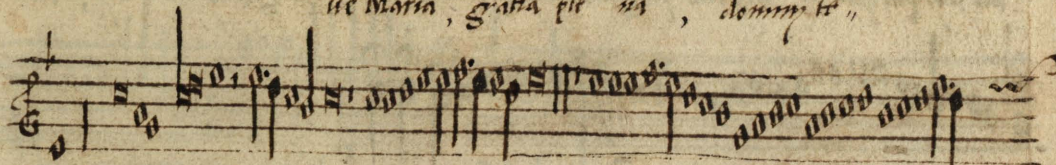 ue Maria, gratia ple na, dominus te„